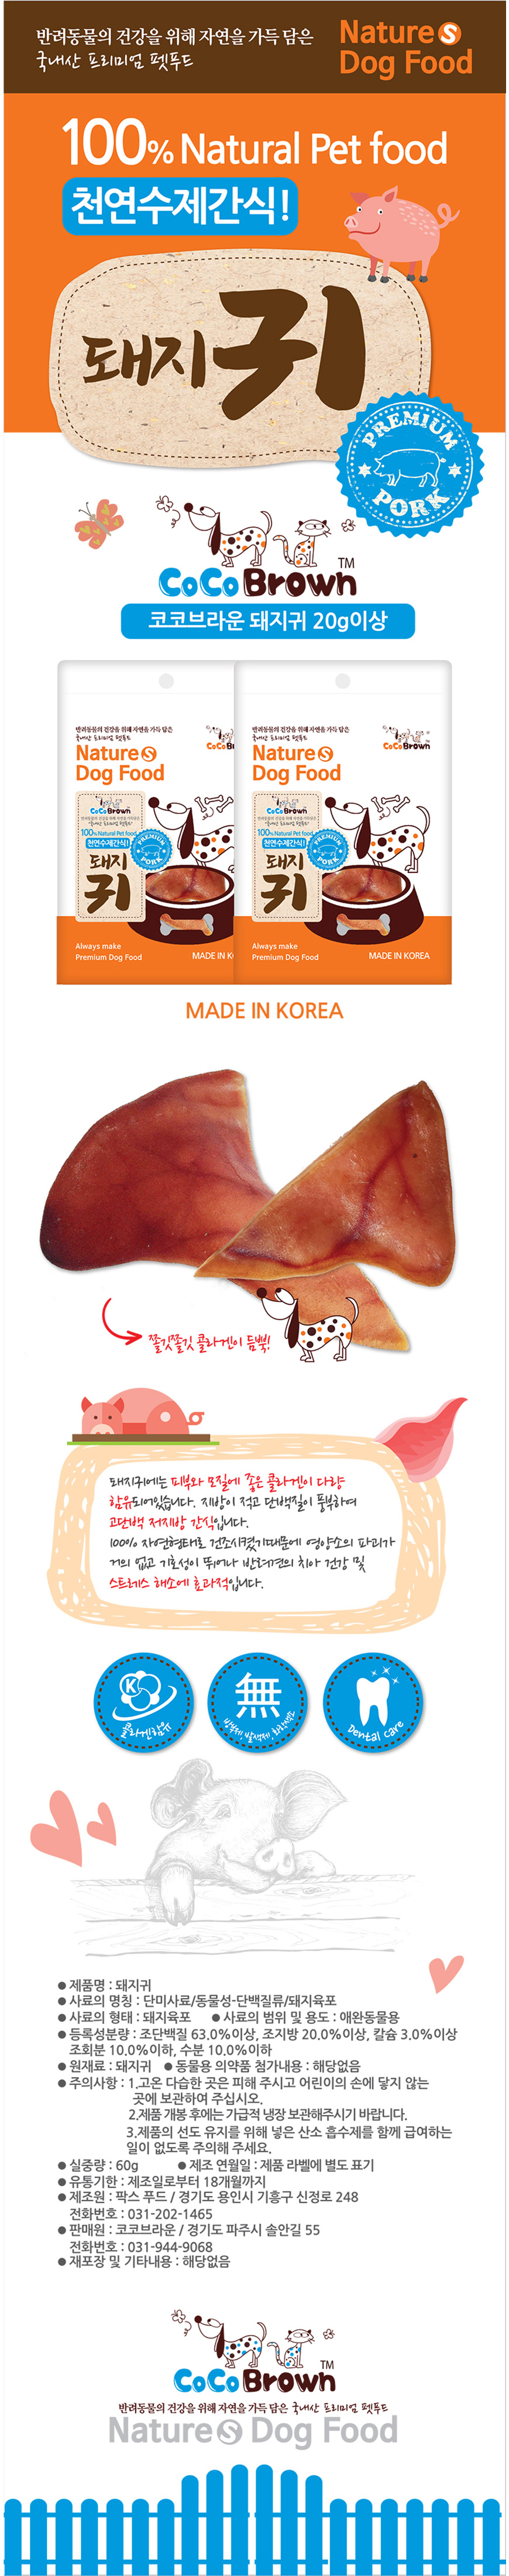 반려동물의 건강을 위해 자연을 가득 담은
국내산 프리미엄 펫푸드
Nature S
Dog Food
100% Natural Pet food
천연수제간식!
돼지귀
PREMIUM
PORK
CoCo Brown TM
코코브라운 돼지귀 20g이상
반려동물의 건강을 위해 자연을 가득 담은
국내산 프리미엄 펫푸드
Nature S
Dog Food
CoCo Br
CoCo Brown
100% Natural Pet food
천연수제간식!
PREMIUM
PORK
돼지
귀
Always make
Premium Dog Food
MADE IN K
반려동물의 건강을 위해 자연을 가득 담은
국내산 프리미엄 펫푸드
Nature S
Dog Food
CoCo Brown
CoCo Brown
100% Natural Pet food
천연수제간식!
PREMIUM
PORK
돼지
귀
Always make
Premium Dog Food
MADE IN KOREA
MADE IN KOREA
쫄깃쫄깃 콜라겐이 듬뿍!
돼지귀에는 피부와 모질에 좋은 콜라겐이 다량
함유되어있습니다. 지방이 적고 단백질이 풍부하여
고단백 저지방 간식입니다.
100% 자연형태로 건조시켰기때문에 영양소의 파괴가
거의 없고 기호성이 뛰어나 반려견의 치아 건강 및
스트레스 해소에 효과적입니다.
K
콜라겐함유
無
방부제, 발색제, 화학색소
Dental care
● 제품명 : 돼지귀
● 사료의 명칭 : 단미사료/동물성-단백질류/돼지육포
● 사료의 형태 : 돼지육포 ● 사료의 범위 및 용도 : 애완동물용
● 등록성분량 : 조단백질 63.0%이상, 조지방 20.0%이상, 칼슘 3.0%이상
조회분 10.0%이하, 수분 10.0%이하
● 원재료 : 돼지귀 ● 동물용 의약품 첨가내용 : 해당없음
● 주의사항 : 1.고온 다습한 곳은 피해 주시고 어린이의 손에 닿지 않는
곳에 보관하여 주십시오.
2.제품 개봉 후에는 가급적 냉장 보관해주시기 바랍니다.
3.제품의 선도 유지를 위해 넣은 산소 흡수제를 함께 급여하는
일이 없도록 주의해 주세요.
● 실중량 : 60g ● 제조 연월일 : 제품 라벨에 별도 표기
● 유통기한 : 제조일로부터 18개월까지
● 제조원 : 팍스 푸드 / 경기도 용인시 기흥구 신정로 248
전화번호 : 031-202-1465
● 판매원 : 코코브라운 / 경기도 파주시 솔안길 55
전화번호 : 031-944-9068
● 재포장 및 기타내용 : 해당없음
CoCo Brown TM
반려동물의 건강을 위해 자연을 가득 담은 국내산 프리미엄 펫푸드
Nature S Dog Food